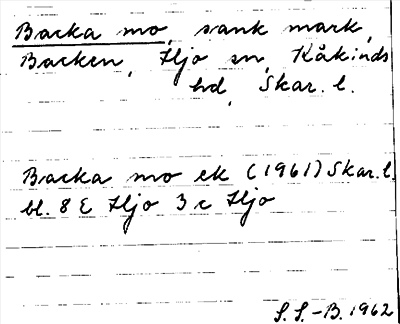 Backa mo, sank mark,
Backen, Hjo sn, Kåkinds
hd, Skar. l.
Backa mo ek (1961) Skar. l.
bl. 8 E Hjo 3 c Hjo
S. S.-B. 1962